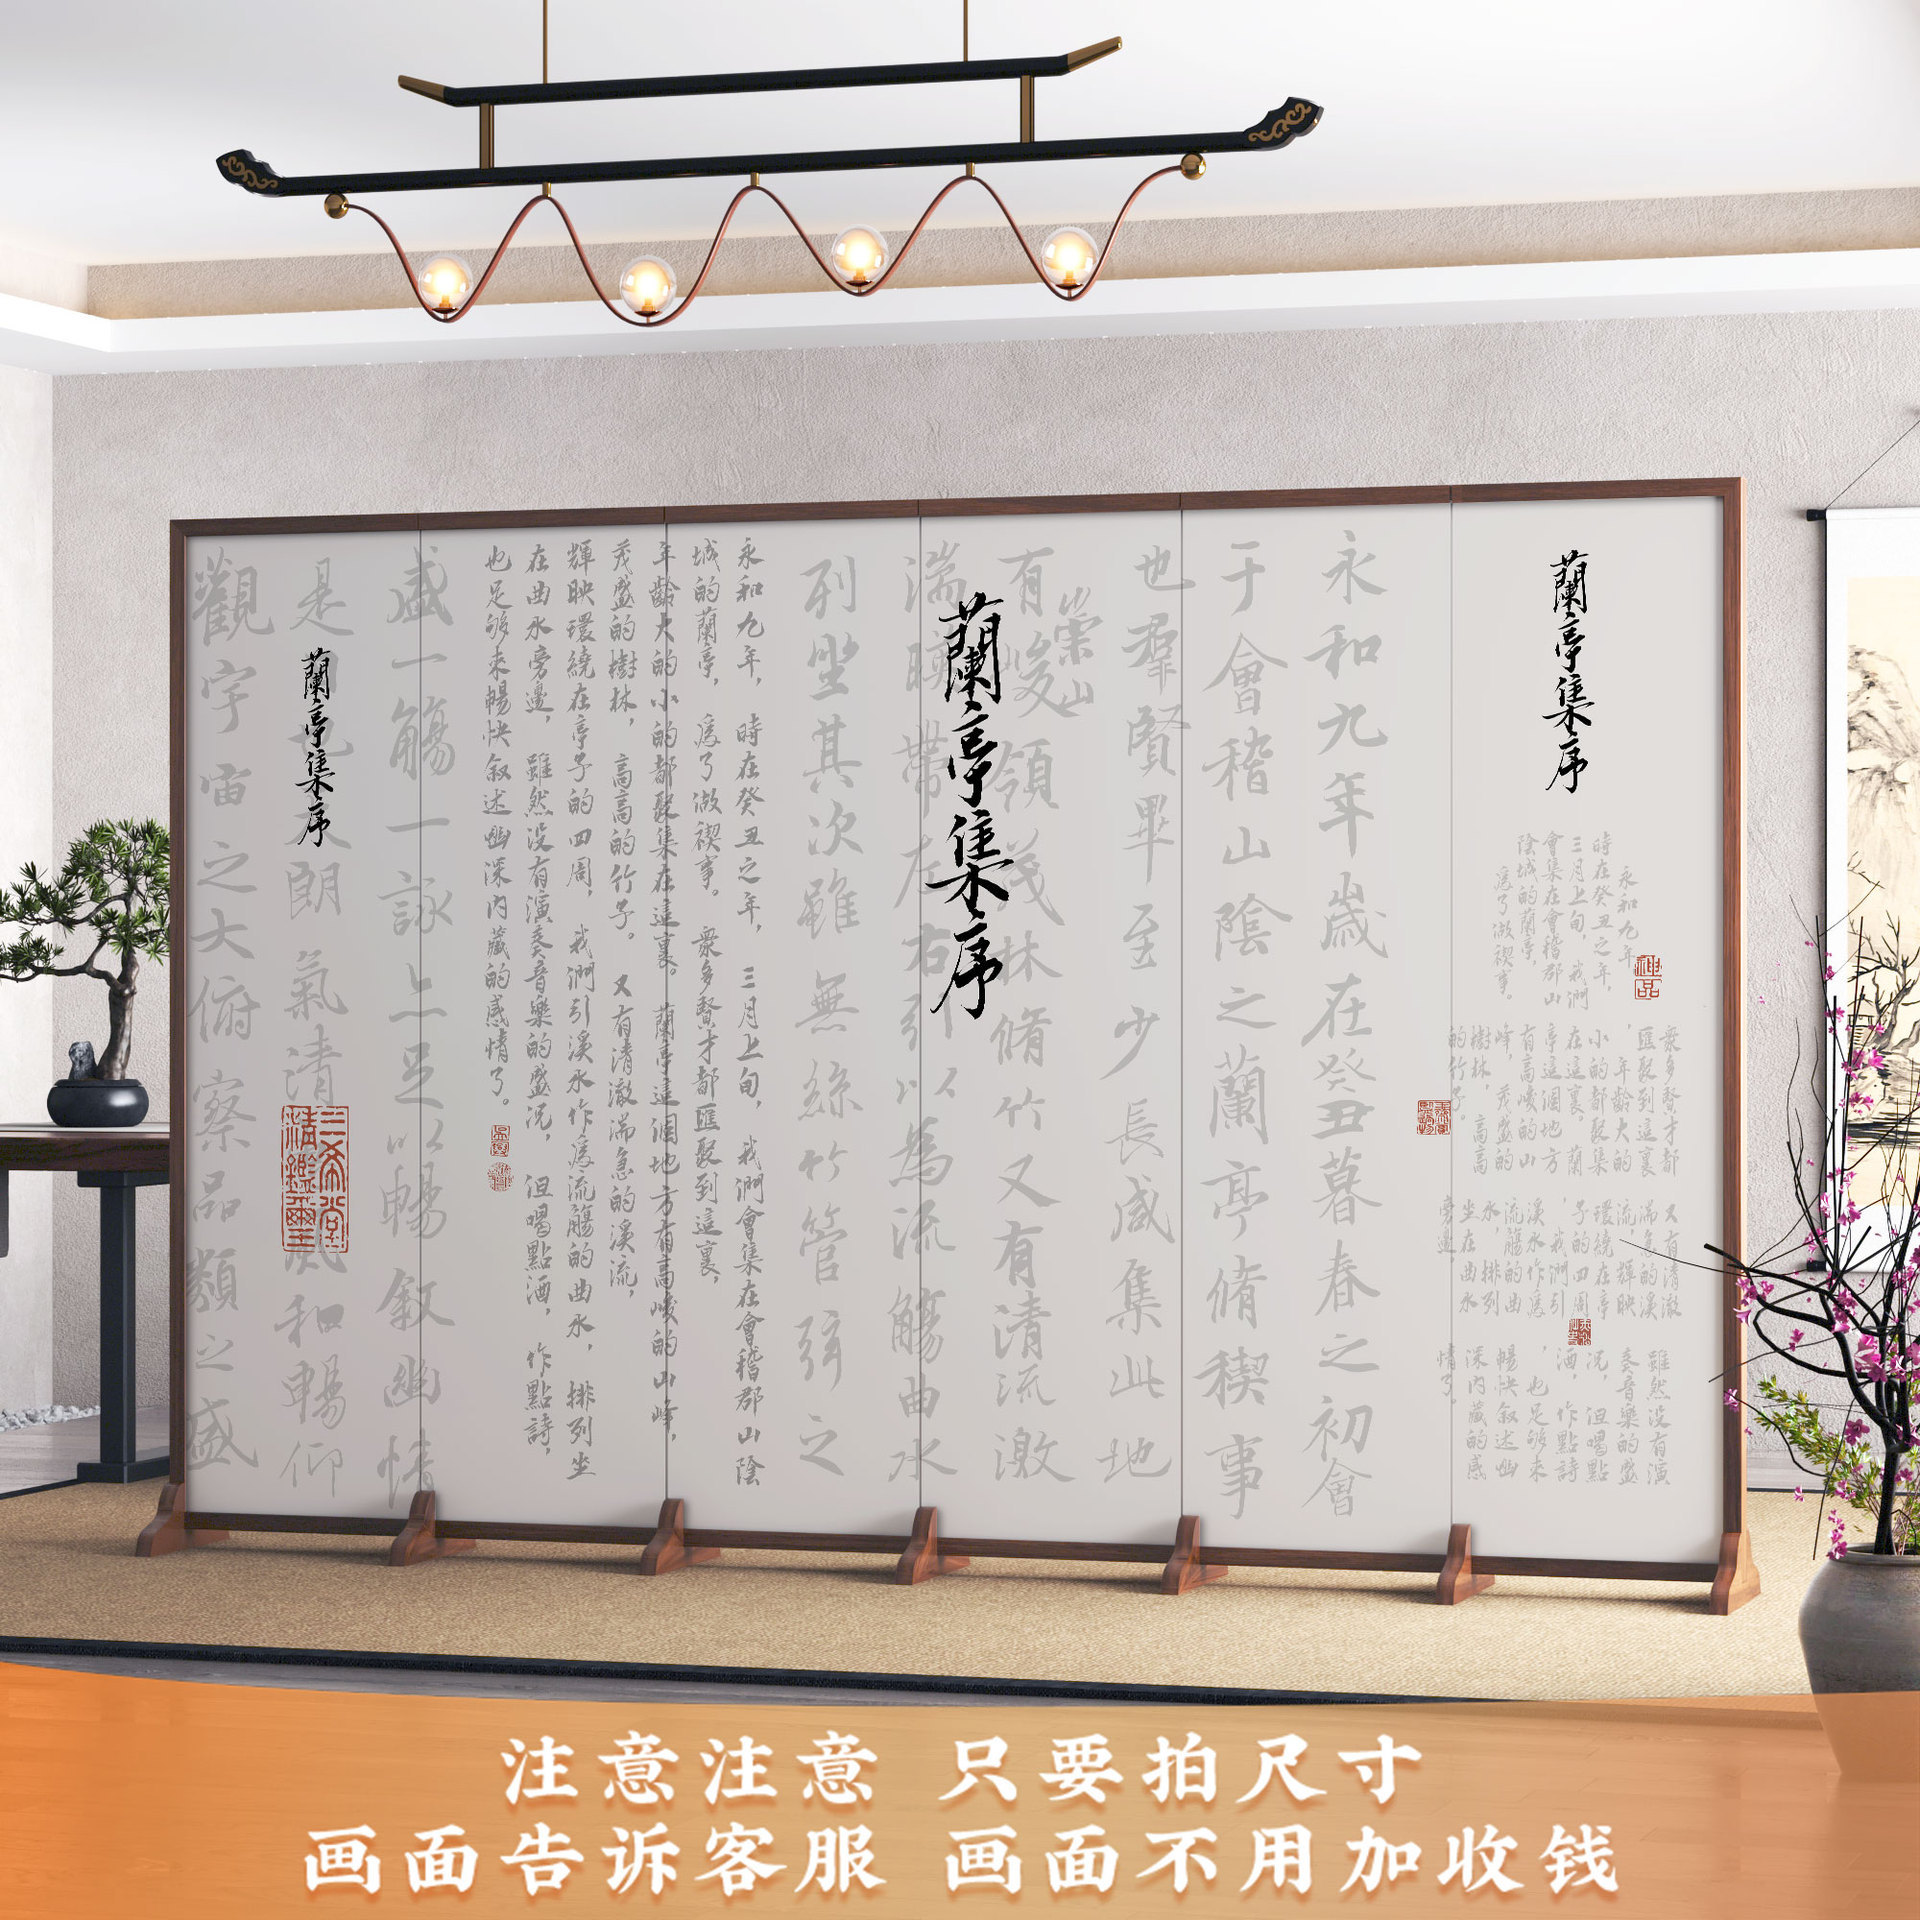 蘭亭集序
永和九年，
時在癸丑之年，
三月上旬，我們
會集在會稽郡山
陰城的蘭亭，
爲了做禊事。
神品
衆多賢才都
匯聚到這裏
，年齡大的
小的都聚集
在這裏。蘭
亭這個地方
有高峻的山
峰，茂盛的
樹林，高高
的竹子。
又有清澈
湍急的溪
流，輝映
環繞在亭
子的四周
，我們引
溪水作爲
流觴的曲
水，排列
坐在曲水
旁邊，
雖然没有演
奏音樂的盛
况，但喝點
酒，作點詩
，也足够來
暢快叙述幽
深内藏的感
情了。
永和九年歲在癸丑暮春之初會
于會稽山陰之蘭亭脩稧事
也羣賢畢至少長咸集此地
崇山
有峻領茂林脩竹又有清流激
蘭亭集序
湍暎帶左右引以為流觴曲水
列坐其次雖無絲竹管弦之
永和九年，時在癸丑之年，三月上旬，我們會集在會稽郡山陰
城的蘭亭，爲了做禊事。衆多賢才都匯聚到這裏，
年齡大的小的都聚集在這裏。蘭亭這個地方有高峻的山峰，
茂盛的樹林，高高的竹子。又有清澈湍急的溪流，
輝映環繞在亭子的四周，我們引溪水作爲流觴的曲水，排列坐
在曲水旁邊，雖然没有演奏音樂的盛况，但喝點酒，作點詩，
也足够來暢快叙述幽深内藏的感情了。
盛一觴一詠亦足以暢敘幽情
蘭亭集序
三希堂
精鑑璽
觀宇宙之大俯察品類之盛
注意注意 只要拍尺寸
画面告诉客服 画面不用加收钱